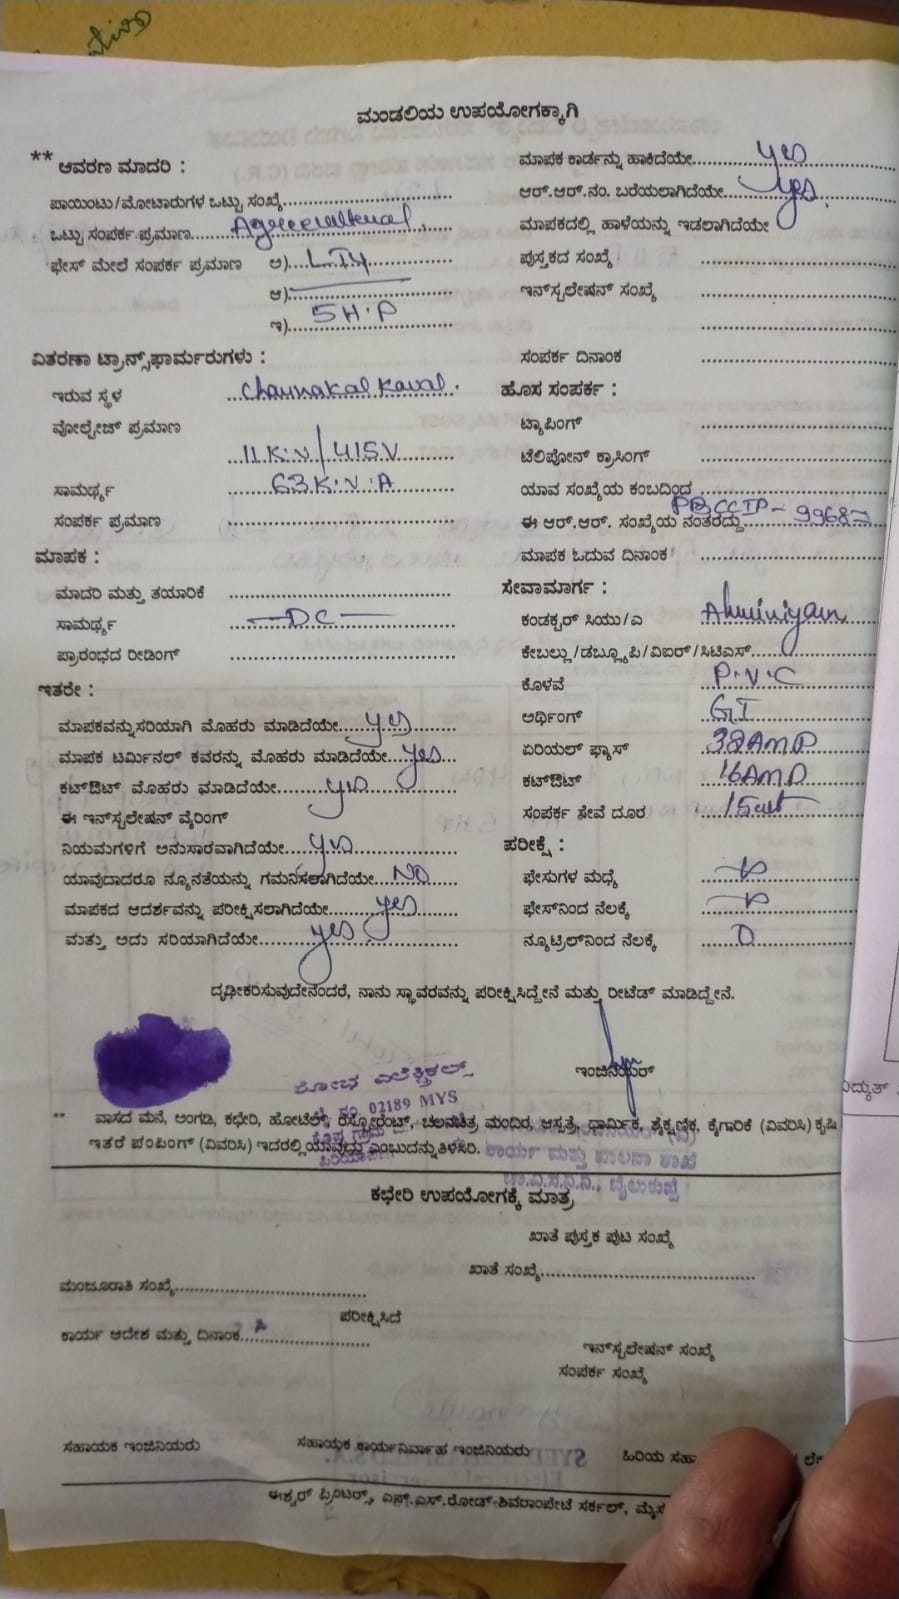 ಮಂಡಲಿಯ ಉಪಯೋಗಕ್ಕಾಗಿ
** ಆವರಣ ಮಾದರಿ :
ಪಾಯಿಂಟು/ಮೋಟಾರುಗಳ ಒಟ್ಟು ಸಂಖ್ಯೆ
ಒಟ್ಟು ಸಂಪರ್ಕ ಪ್ರಮಾಣ
ಫೇಸ್ ಮೇಲೆ ಸಂಪರ್ಕ ಪ್ರಮಾಣ ಅ)
ಆ)
ಇ) 5 H.P
ವಿತರಣಾ ಟ್ರಾನ್ಸ್‌ಫಾರ್ಮರುಗಳು :
ಇರುವ ಸ್ಥಳ Channakal Kaval.
ವೋಲ್ಟೇಜ್ ಪ್ರಮಾಣ
11 K.V/415V
ಸಾಮರ್ಥ್ಯ 63 K.V.A
ಸಂಪರ್ಕ ಪ್ರಮಾಣ
ಮಾಪಕ :
ಮಾದರಿ ಮತ್ತು ತಯಾರಿಕೆ
ಸಾಮರ್ಥ್ಯ — DC —
ಪ್ರಾರಂಭದ ರೀಡಿಂಗ್
ಇತರೇ :
ಮಾಪಕವನ್ನು ಸರಿಯಾಗಿ ಮೊಹರು ಮಾಡಿದೆಯೇ yes
ಮಾಪಕ ಟರ್ಮಿನಲ್ ಕವರನ್ನು ಮೊಹರು ಮಾಡಿದೆಯೇ yes
ಕಟ್‌ಔಟ್ ಮೊಹರು ಮಾಡಿದೆಯೇ yes
ಈ ಇನ್‌ಸ್ಟಲೇಷನ್ ವೈರಿಂಗ್
ನಿಯಮಗಳಿಗೆ ಅನುಸಾರವಾಗಿದೆಯೇ yes
ಯಾವುದಾದರೂ ನ್ಯೂನತೆಯನ್ನು ಗಮನಿಸಲಾಗಿದೆಯೇ NO
ಮಾಪಕದ ಆದರ್ಶವನ್ನು ಪರೀಕ್ಷಿಸಲಾಗಿದೆಯೇ yes
ಮತ್ತು ಅದು ಸರಿಯಾಗಿದೆಯೇ yes
ಮಾಪಕ ಕಾರ್ಡನ್ನು ಹಾಕಿದೆಯೇ yes
ಆರ್.ಆರ್.ನಂ. ಬರೆಯಲಾಗಿದೆಯೇ yes
ಮಾಪಕದಲ್ಲಿ ಹಾಳೆಯನ್ನು ಇಡಲಾಗಿದೆಯೇ
ಪುಸ್ತಕದ ಸಂಖ್ಯೆ
ಇನ್‌ಸ್ಟಲೇಷನ್ ಸಂಖ್ಯೆ
ಸಂಪರ್ಕ ದಿನಾಂಕ
ಹೊಸ ಸಂಪರ್ಕ :
ಟ್ಯಾಪಿಂಗ್
ಟೆಲಿಪೋನ್ ಕ್ರಾಸಿಂಗ್
ಯಾವ ಸಂಖ್ಯೆಯ ಕಂಬದಿಂದ
ಈ ಆರ್.ಆರ್. ಸಂಖ್ಯೆಯ ನಂತರದ್ದು
ಮಾಪಕ ಓದುವ ದಿನಾಂಕ
ಸೇವಾಮಾರ್ಗ :
ಕಂಡಕ್ಟರ್ ಸಿಯು/ಎ Aluminiyam
ಕೇಬಲ್ಲು/ಡಬ್ಲ್ಯೂಪಿ/ವಿಐರ್/ಸಿಟಿಎಸ್
ಕೊಳವೆ P.V.C
ಅರ್ಥಿಂಗ್ GI
ಏರಿಯಲ್ ಫ್ಯೂಸ್ 32AMP
ಕಟ್‌ಔಟ್ 16AMP
ಸಂಪರ್ಕ ಸೇವೆ ದೂರ
ಪರೀಕ್ಷೆ :
ಫೇಸುಗಳ ಮಧ್ಯೆ
ಫೇಸ್‌ನಿಂದ ನೆಲಕ್ಕೆ
ನ್ಯೂಟ್ರಿಲ್‌ನಿಂದ ನೆಲಕ್ಕೆ
ದೃಢೀಕರಿಸುವುದೇನೆಂದರೆ, ನಾನು ಸ್ಥಾವರವನ್ನು ಪರೀಕ್ಷಿಸಿದ್ದೇನೆ ಮತ್ತು ರೀಟೆಡ್ ಮಾಡಿದ್ದೇನೆ.
ಇಂಜಿನಿಯರ್
ಎಲೆಕ್ಟ್ರಿಕಲ್ಸ್
ನಂ. 02189 MYS
** ವಾಸದ ಮನೆ, ಅಂಗಡಿ, ಕಛೇರಿ, ಹೋಟೆಲ್, ರೆಸ್ಟೋರೆಂಟ್, ಚಲನಚಿತ್ರ ಮಂದಿರ, ಆಸ್ಪತ್ರೆ, ಧಾರ್ಮಿಕ, ಶೈಕ್ಷಣಿಕ, ಕೈಗಾರಿಕೆ (ವಿವರಿಸಿ) ಕೃಷಿ
ಇತರೆ ಪಂಪಿಂಗ್ (ವಿವರಿಸಿ) ಇದರಲ್ಲಿ ಯಾವುದು ಎಂಬುದನ್ನು ತಿಳಿಸಿರಿ.
ಕಾರ್ಯ ಮತ್ತು ಪಾಲನಾ ಶಾಖೆ
ಚಾ.ವಿ.ಸ.ನಿ.ನಿ., ಬೈಲುಕುಪ್ಪೆ
ಕಛೇರಿ ಉಪಯೋಗಕ್ಕೆ ಮಾತ್ರ
ಖಾತೆ ಪುಸ್ತಕ ಪುಟ ಸಂಖ್ಯೆ
ಖಾತೆ ಸಂಖ್ಯೆ
ಮಂಜೂರಾತಿ ಸಂಖ್ಯೆ
ಪರೀಕ್ಷಿಸಿದೆ
ಕಾರ್ಯ ಆದೇಶ ಮತ್ತು ದಿನಾಂಕ
ಇನ್‌ಸ್ಟಲೇಷನ್ ಸಂಖ್ಯೆ
ಸಂಪರ್ಕ ಸಂಖ್ಯೆ
ಸಹಾಯಕ ಇಂಜಿನಿಯರು ಸಹಾಯಕ ಕಾರ್ಯನಿರ್ವಾಹ ಇಂಜಿನಿಯರು ಹಿರಿಯ ಸಹಾ
ಈಶ್ವರ್ ಪ್ರಿಂಟರ್ಸ್, ಎನ್.ಎಸ್.ರೋಡ್-ಶಿವರಾಂಪೇಟೆ ಸರ್ಕಲ್, ಮೈಸ